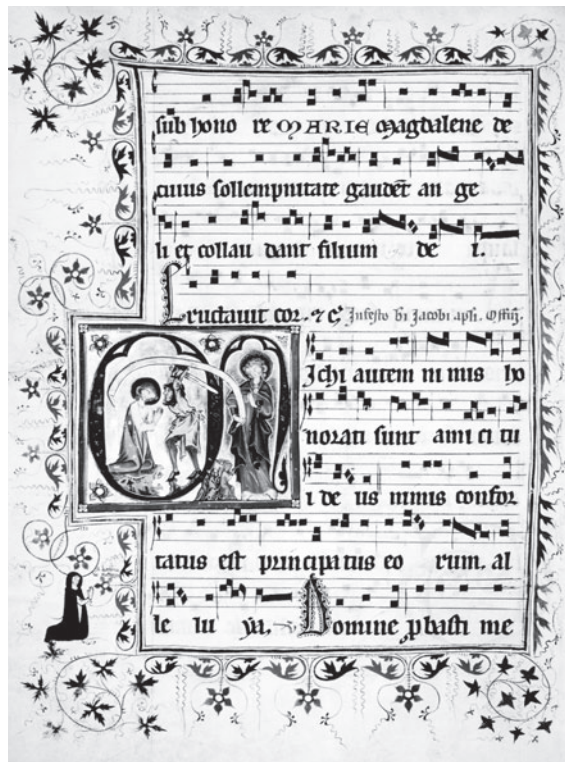 sub hono re MARIE Magdalene de
cuius sollempnitate gaudēt an ge
li et collau dant filium de i.
Eructauit cor. ⁊ cͣ In festo bī Jacobi apłi. Offiͫ.
Michi autem ni mis ho
norati sunt ami ci tu
i de us nimis confor
tatus est principa tus eo rum. al
le lu ya. Domine ꝓbasti me